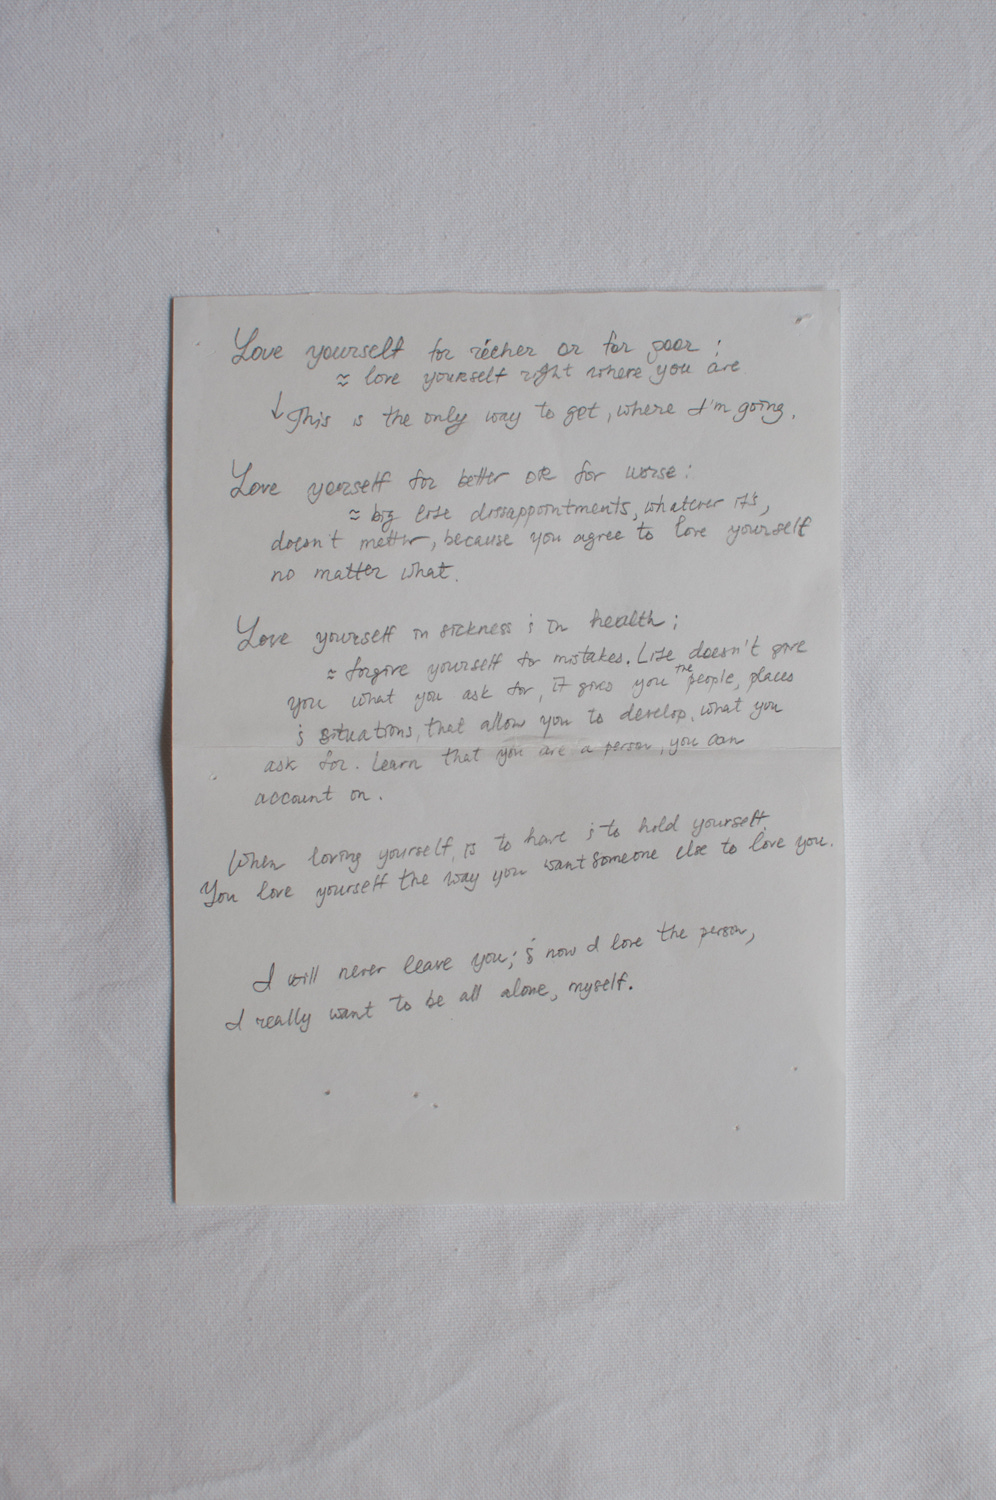 Love yourself for richer or for poor :
≈ love yourself right where you are
↓ This is the only way to get, where I'm going.
Love yourself for better or for worse :
≈ big life dissappointments, whatever it's,
doesn't matter, because you agree to love yourself
no matter what.
Love yourself in sickness & in health ;
≈ forgive yourself for mistakes. Life doesn't give
you what you ask for, it gives you the people, places
& situations, that allow you to develop, what you
ask for. Learn that you are a person, you can
account on.
When loving yourself, is to have & to hold yourself.
You love yourself the way you want someone else to love you.
I will never leave you; & now I love the person,
I really want to be all alone, myself.